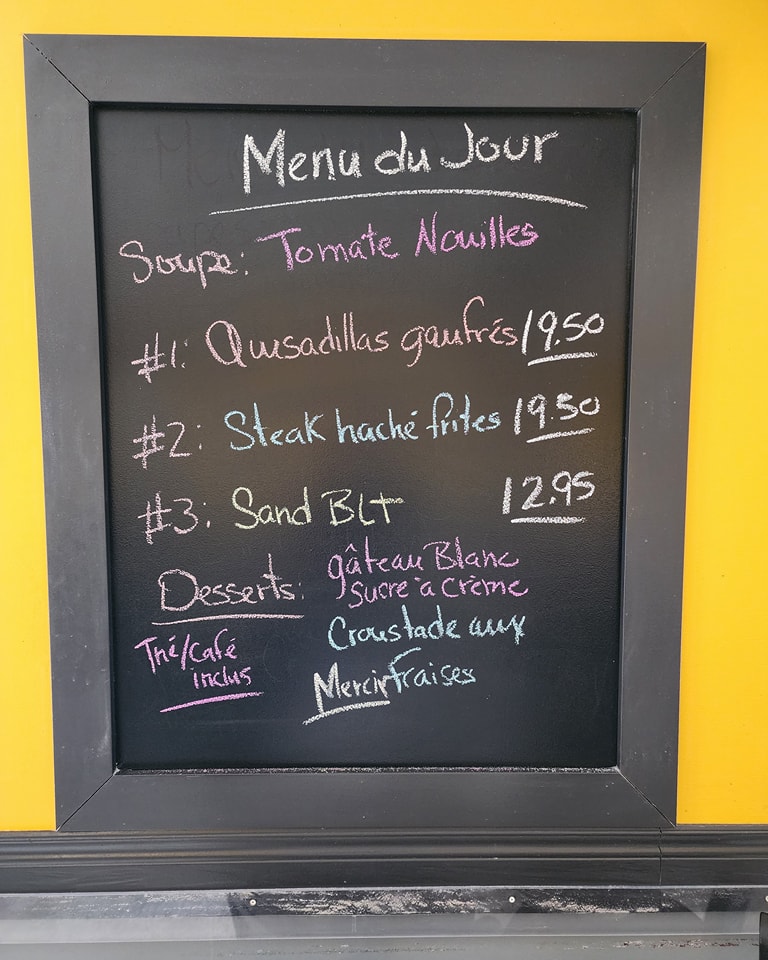 Menu du Jour
Soupe: Tomate Nouilles
#1: Quisadillas gaufrés 19.50
#2: Steak haché frites 19.50
#3: Sand BLT 12.95
Desserts: gâteau Blanc
sucre à crème
Croustade aux
fraises
Thé/Café
inclus
Merci